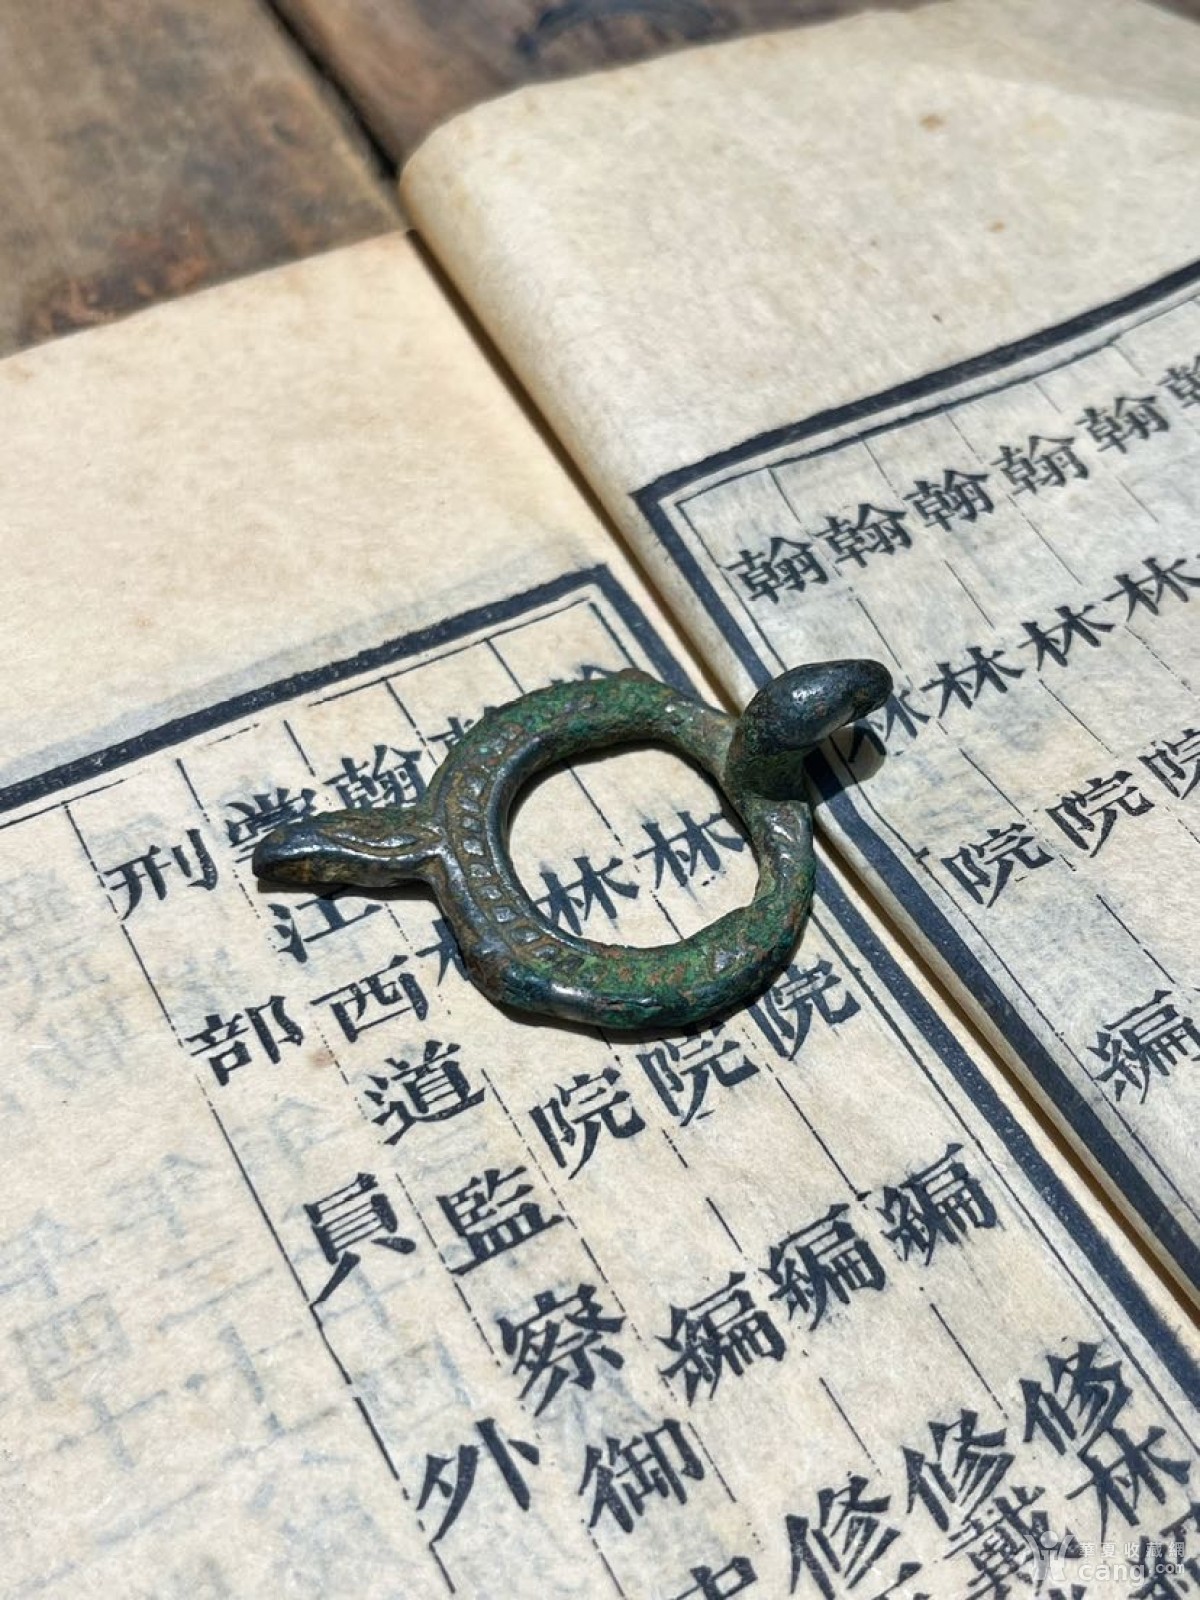 翰
翰林
翰林院
翰林院
翰林院編
林院編修
林院編修
翰林院編修
掌江西道監察御
刑部員外
華夏收藏網
cang.com